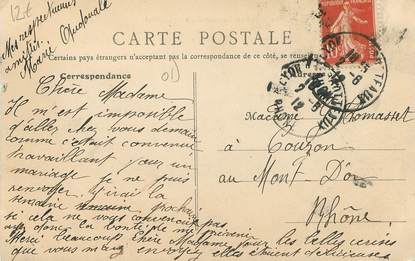 12f
Mes respectueuses
amitiés.
Marie
CARTE POSTALE
Certains pays étrangers n'acceptant pas la correspondance de ce côté, se
Correspondance
Chère Madame
Il m'est impossible
d'aller chez vous demain
comme c'était convenu
travaillant pour un
mariage je ne puis
renvoyer. J'irai la
semaine prochaine
si cela ne vous convenait pas
ayez donc la bonté de me prévenir
Merci beaucoup Chère Madame pour les belles cerises
que vous m'avez envoyé elles étaient délicieuses
Madame Thomasset
à Couzon
au Mont-D'or
Rhône